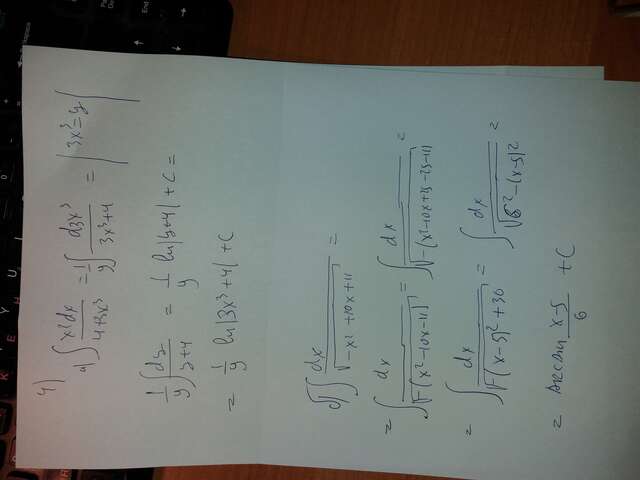 4)
a) ∫ x²dx / 4+3x³ = 1/9 ∫ d3x³ / 3x³+4 = | 3x³=y |
1/9 ∫ dy / y+4 = 1/9 ln|y+4| + C =
= 1/9 ln|3x³+4| + C
d) ∫ dx / √-x²+10x+11 =
= ∫ dx / √-(x²-10x-11) = ∫ dx / √-(x²-10x+25-25-11) =
= ∫ dx / √-(x-5)²+36 = ∫ dx / √6²-(x-5)² =
= arcsin x-5 / 6 + C